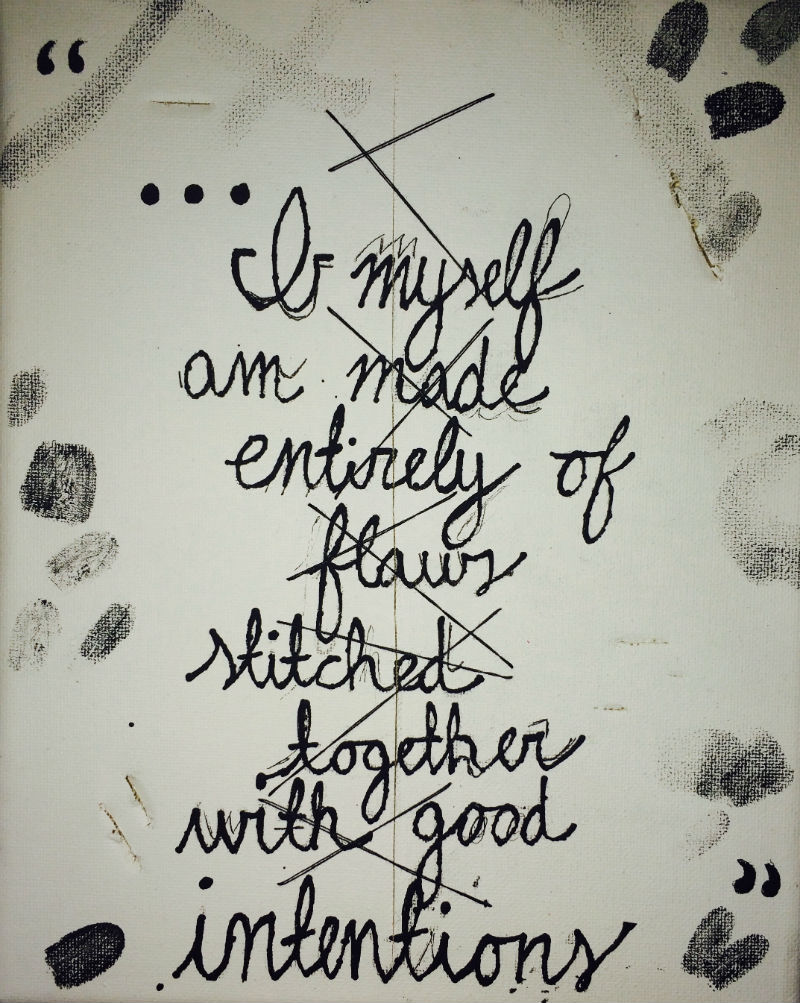 “
... I myself
am made
entirely of
flaws
stitched
together
with good
intentions
”